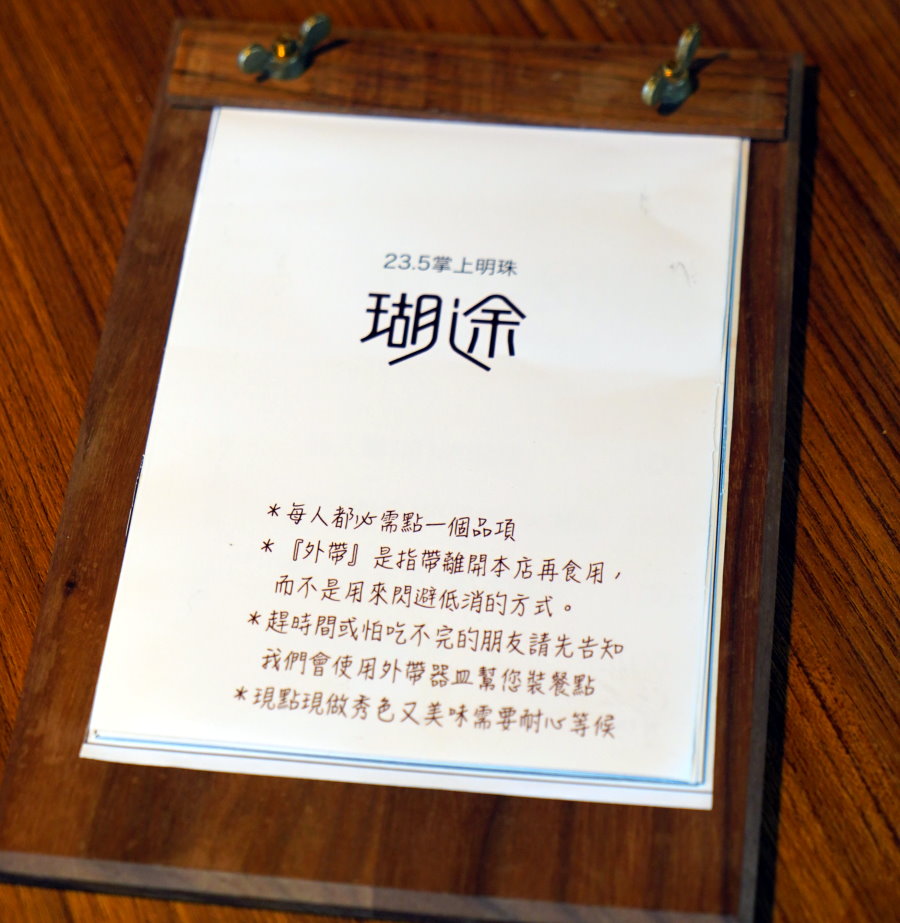 23.5掌上明珠
瑚途
＊每人都必需點一個品項
＊『外帶』是指帶離開本店再食用，
而不是用來閃避低消的方式。
＊趕時間或怕吃不完的朋友請先告知
我們會使用外帶器皿幫您裝餐點
＊現點現做秀色又美味需要耐心等候